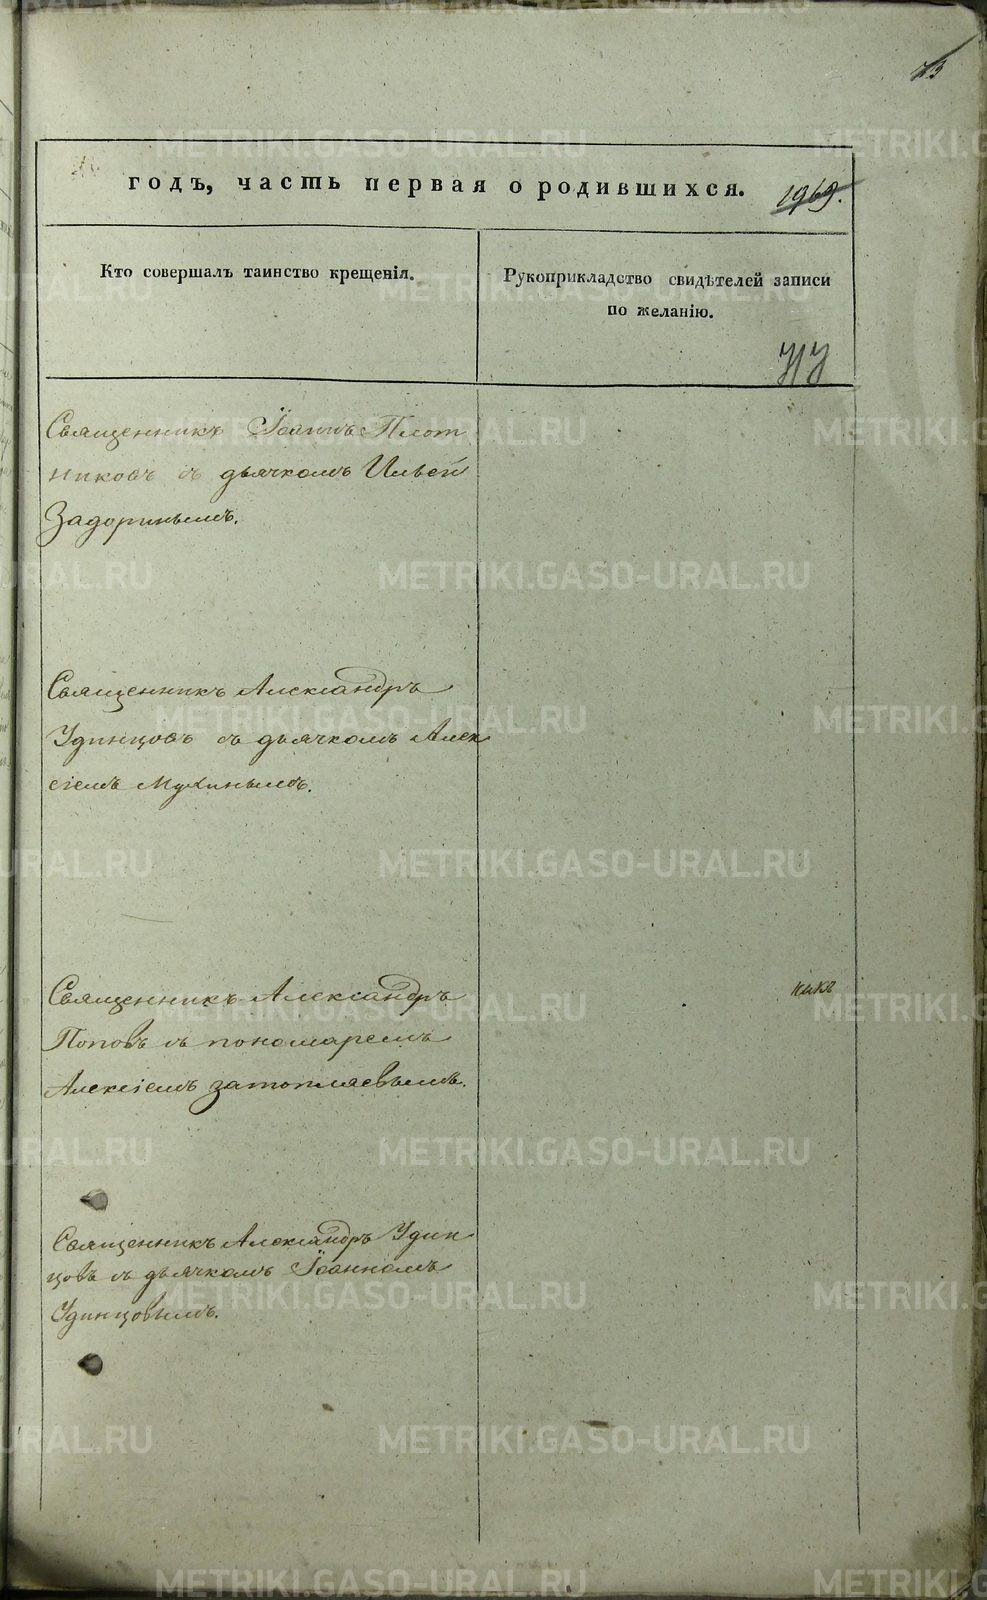 годъ, часть первая о родившихся. 1969.
Кто совершалъ таинство крещенія.
Рукоприкладство свидѣтелей записи
по желанію.
Священникъ Іоаннъ Плот
никовъ съ дьячкомъ Ильей
Задоринымъ.
Священникъ Александръ
Удинцовъ съ дьячкомъ Алек
сіемъ Мухинымъ.
Священникъ Александръ
Поповъ съ пономаремъ
Алексіемъ Затопляевымъ.
Священникъ Александръ Удин
цовъ съ дьячкомъ Іоанномъ
Удинцовымъ.
METRIKI.GASO-URAL.RU